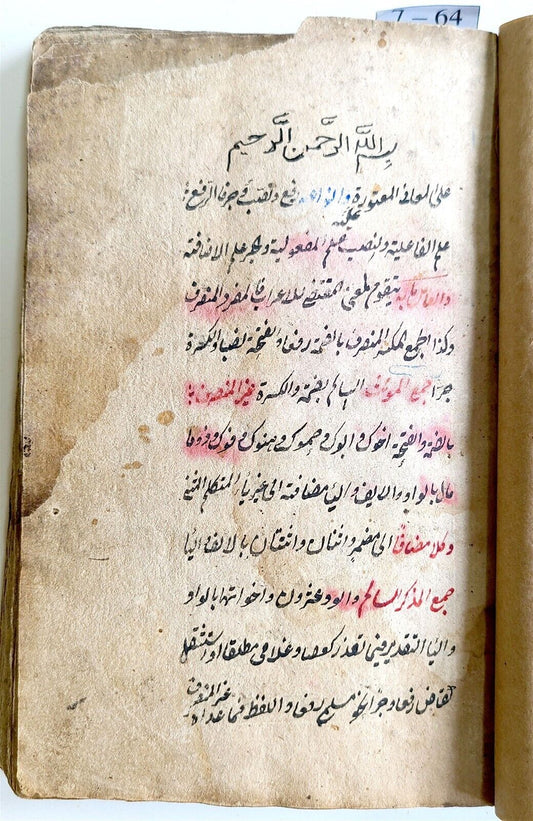 7 – 64
بسم الله الرحمن الرحيم
على المعاني المعتورة وانواعه رفع ونصب وجر فالرفع
علم الفاعلية والنصب علم المفعولية والجر علم الاضافة
والعامل ما به يتقوم المعنى المقتضي للاعراب فالمفرد المنصرف
وكذا الجمع المكسر المنصرف بالضمة رفعا والفتحة نصبا والكسرة
جرا جمع المؤنث السالم بالضمة والكسرة غير المنصرف
بالضمة والفتحة اخوك وابوك وحموك وهنوك وفوك وذو
مال بالواو والالف والياء مضافة الى غير ياء المتكلم المثنى
وكلا مضافا الى مضمر واثنان واثنتان بالالف والياء
جمع المذكر السالم والو وعشرون واخواتها بالواو
والياء التقدير فيما تعذر كعصا وغلامي مطلقا او استثقل
كقاض رفعا وجرا ونحو مسلمي رفعا واللفظ فيما عداه غير المنصرف